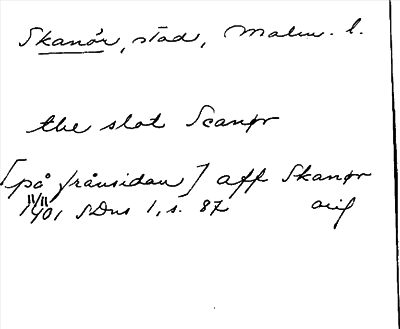 Skanör, stad, Malm. l.
the slot Scanør
[på frånsidan] aff Skanør
11/11 1401 SDns 1, s. 87 orig